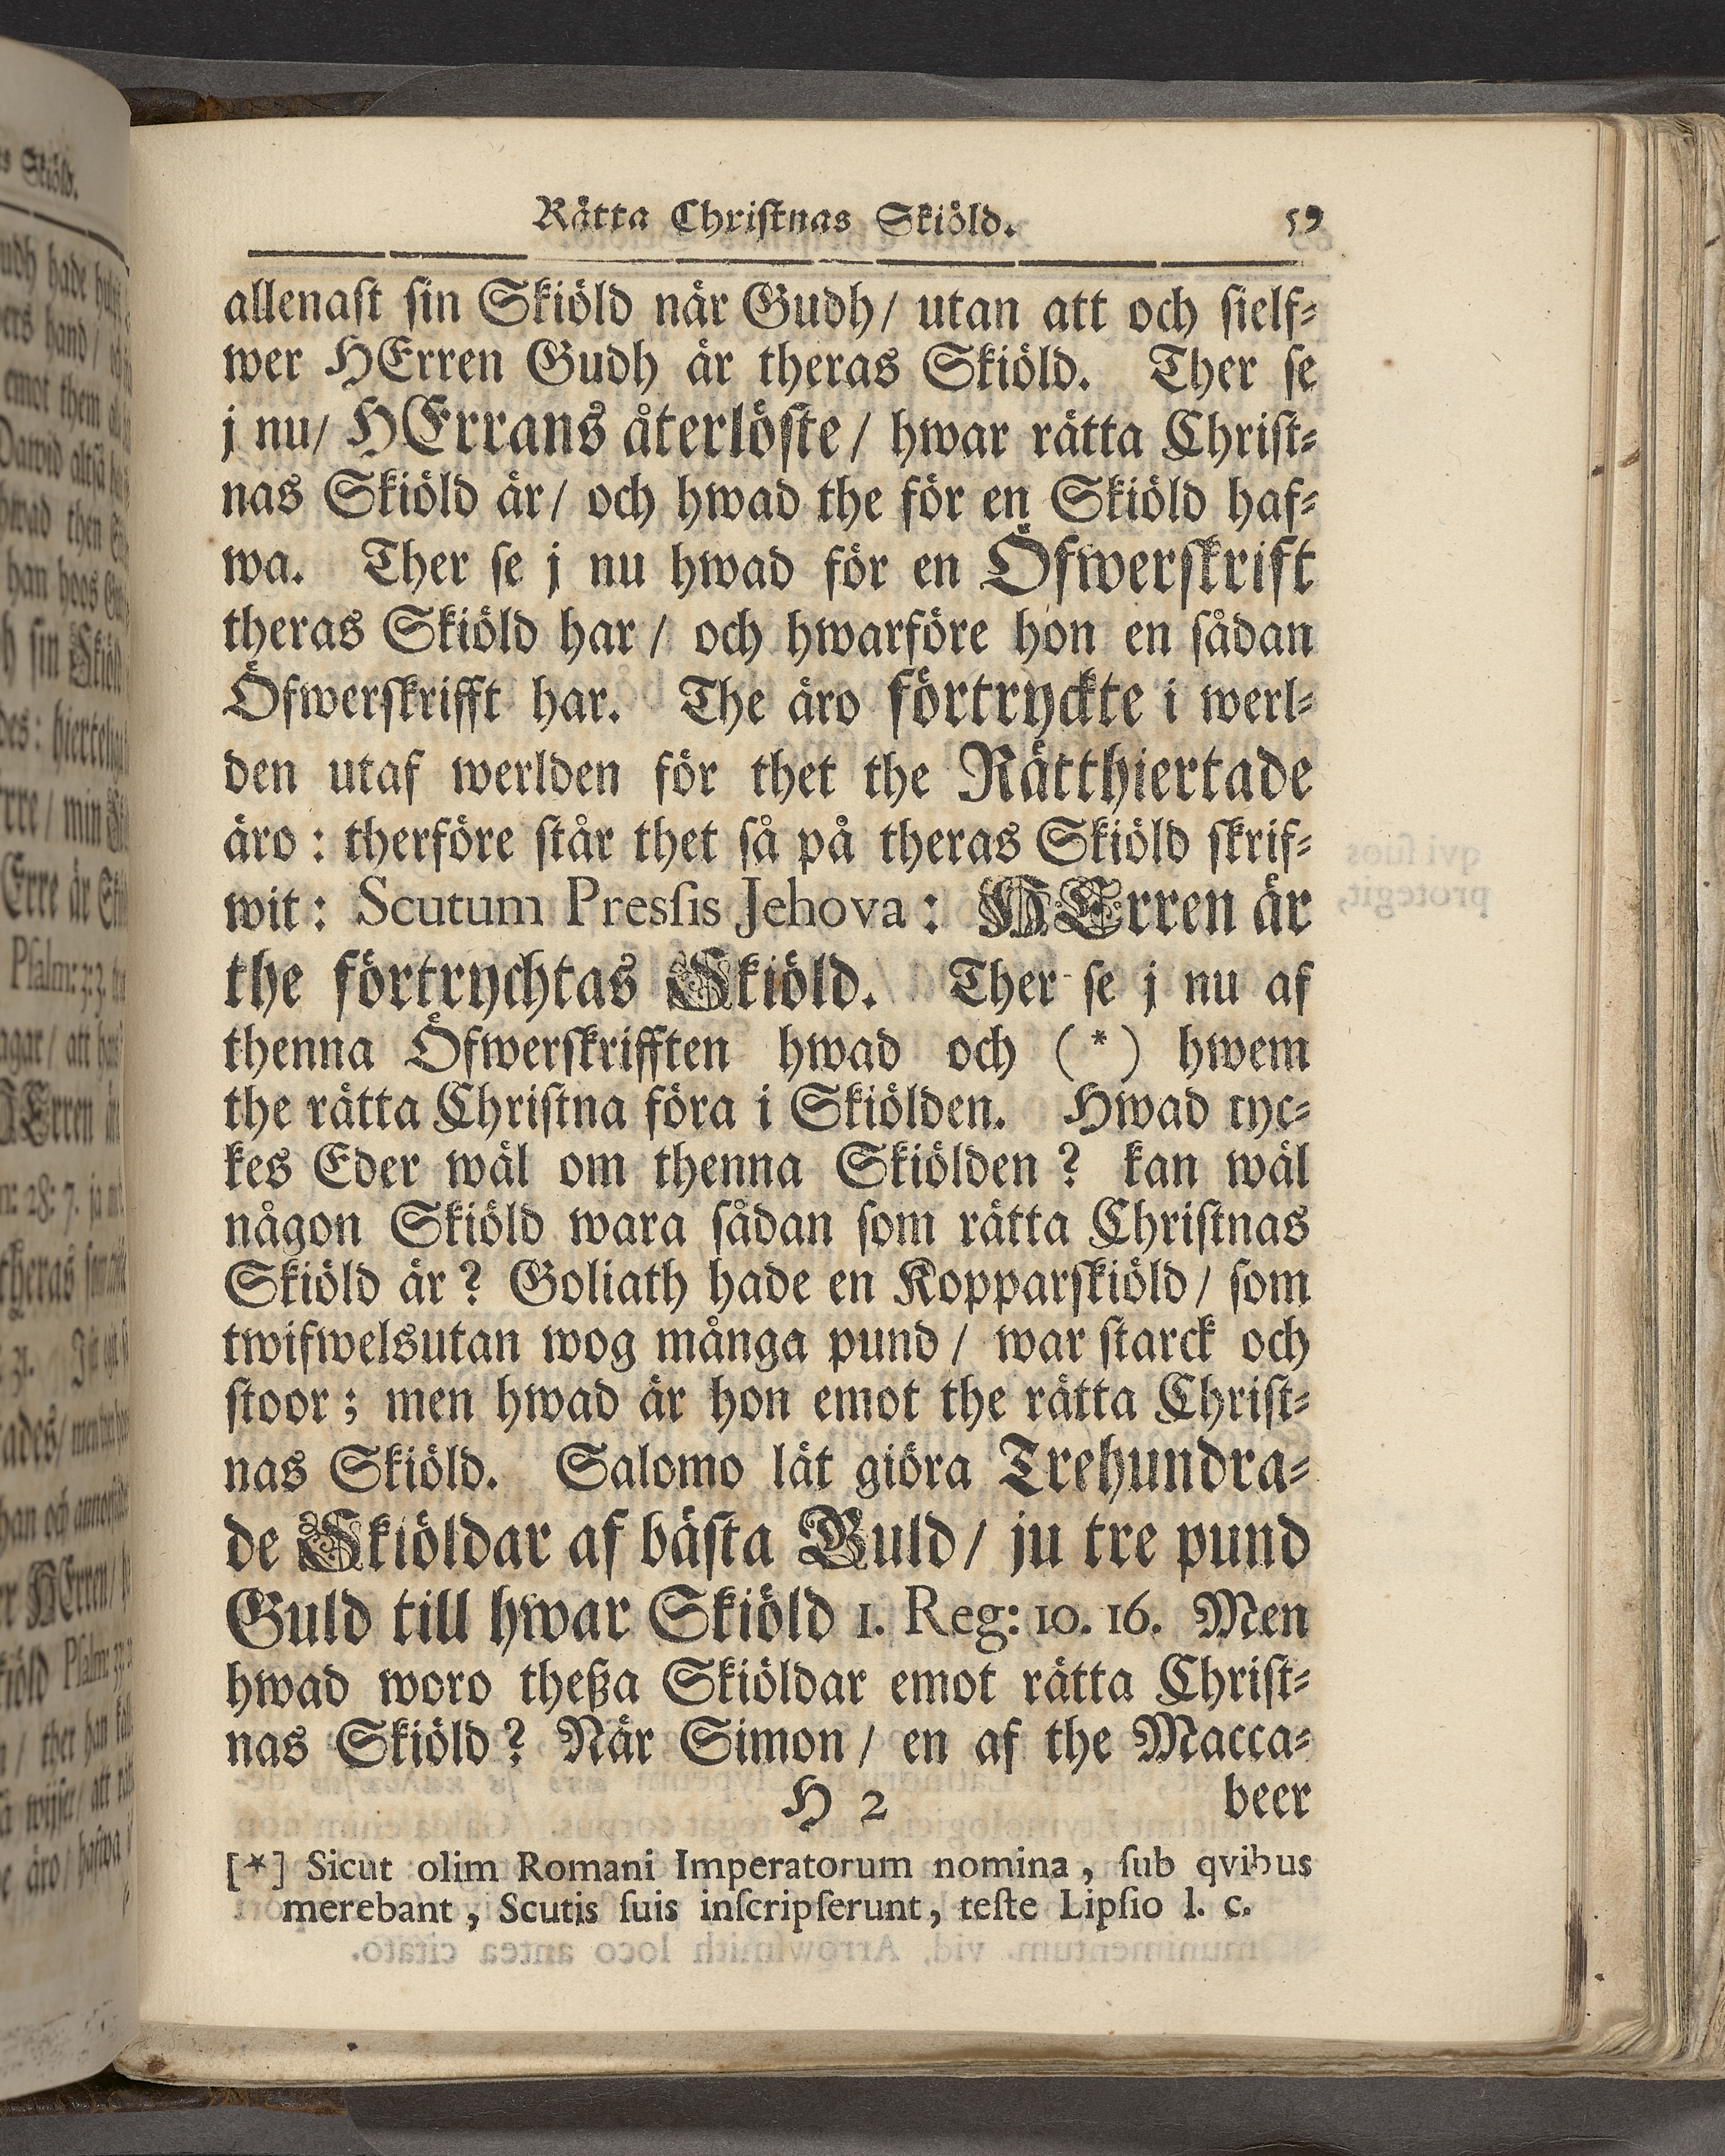 Rätta Christnas Skiöld. 59
allenast sin Skiöld när Gudh/ utan att och sielf⸗
wer HErren Gudh är theras Skiöld. Ther se
j nu/ HErrans återlöste/ hwar rätta Christ⸗
nas Skiöld är/ och hwad the för en Skiöld haf⸗
wa. Ther se j nu hwad för en Öfwerskrift
theras Skiöld har/ och hwarföre hon en sådan
Öfwerskrifft har. The äro förtryckte i werl⸗
den utaf werlden för thet the Rätthiertade
äro: therföre står thet så på theras Skiöld skrif⸗
wit: Scutum Pressis Jehova: HErren är
the förtrychtas Skiöld. Ther se j nu af
thenna Öfwerskrifften hwad och (*) hwem
the rätta Christna föra i Skiölden. Hwad tyc⸗
kes Eder wäl om thenna Skiölden? kan wäl
någon Skiöld wara sådan som rätta Christnas
Skiöld är? Goliath hade en Kopparskiöld/ som
twifwelsutan wog många pund/ war starck och
stoor; men hwad är hon emot the rätta Christ⸗
nas Skiöld. Salomo lät giöra Trehundra⸗
de Skiöldar af bästa Guld/ ju tre pund
Guld till hwar Skiöld 1. Reg: 10. 16. Men
hwad woro theßa Skiöldar emot rätta Christ⸗
nas Skiöld? När Simon/ en af the Macca⸗
H 2 beer
[*] Sicut olim Romani Imperatorum nomina, sub qvibus
merebant, Scutis suis inscripserunt, teste Lipsio l. c.